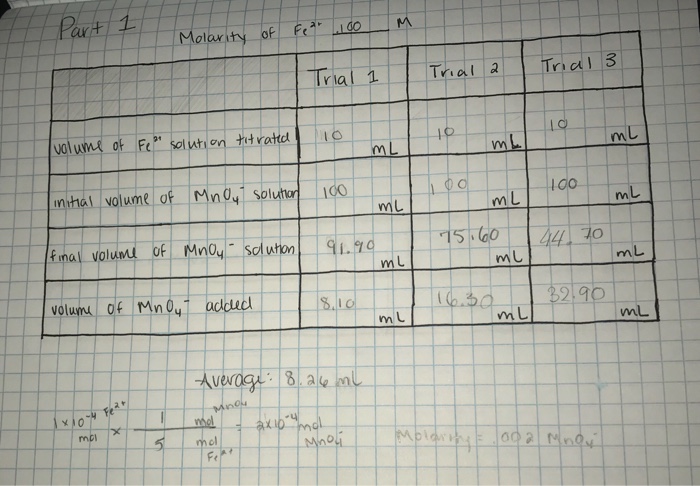 Part 1 Molarity of Fe²⁺ .100 M
Trial 1 Trial 2 Trial 3
volume of Fe²⁺ solution titrated 10 mL 10 mL 10 mL
initial volume of MnO₄⁻ solution 100 mL 100 mL 100 mL
final volume of MnO₄⁻ solution 91.90 mL 75.60 mL 44.70 mL
volume of MnO₄⁻ added 8.10 mL 16.30 mL 32.90 mL
Average: 8.26 mL
1x10⁻⁴ Fe²⁺ mol x 1 mol MnO₄ / 5 mol Fe²⁺ = 2x10⁻⁴ mol MnO₄⁻ Molarity = .002 MnO₄⁻